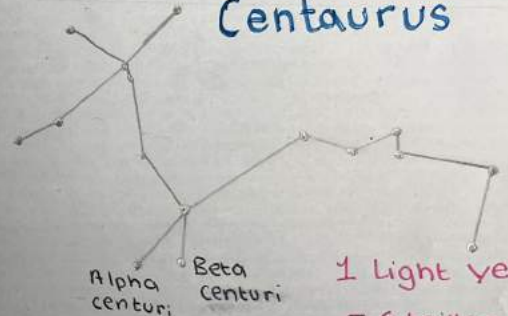 Centaurus
Alpha
centuri
Beta
centuri
1 Light ye